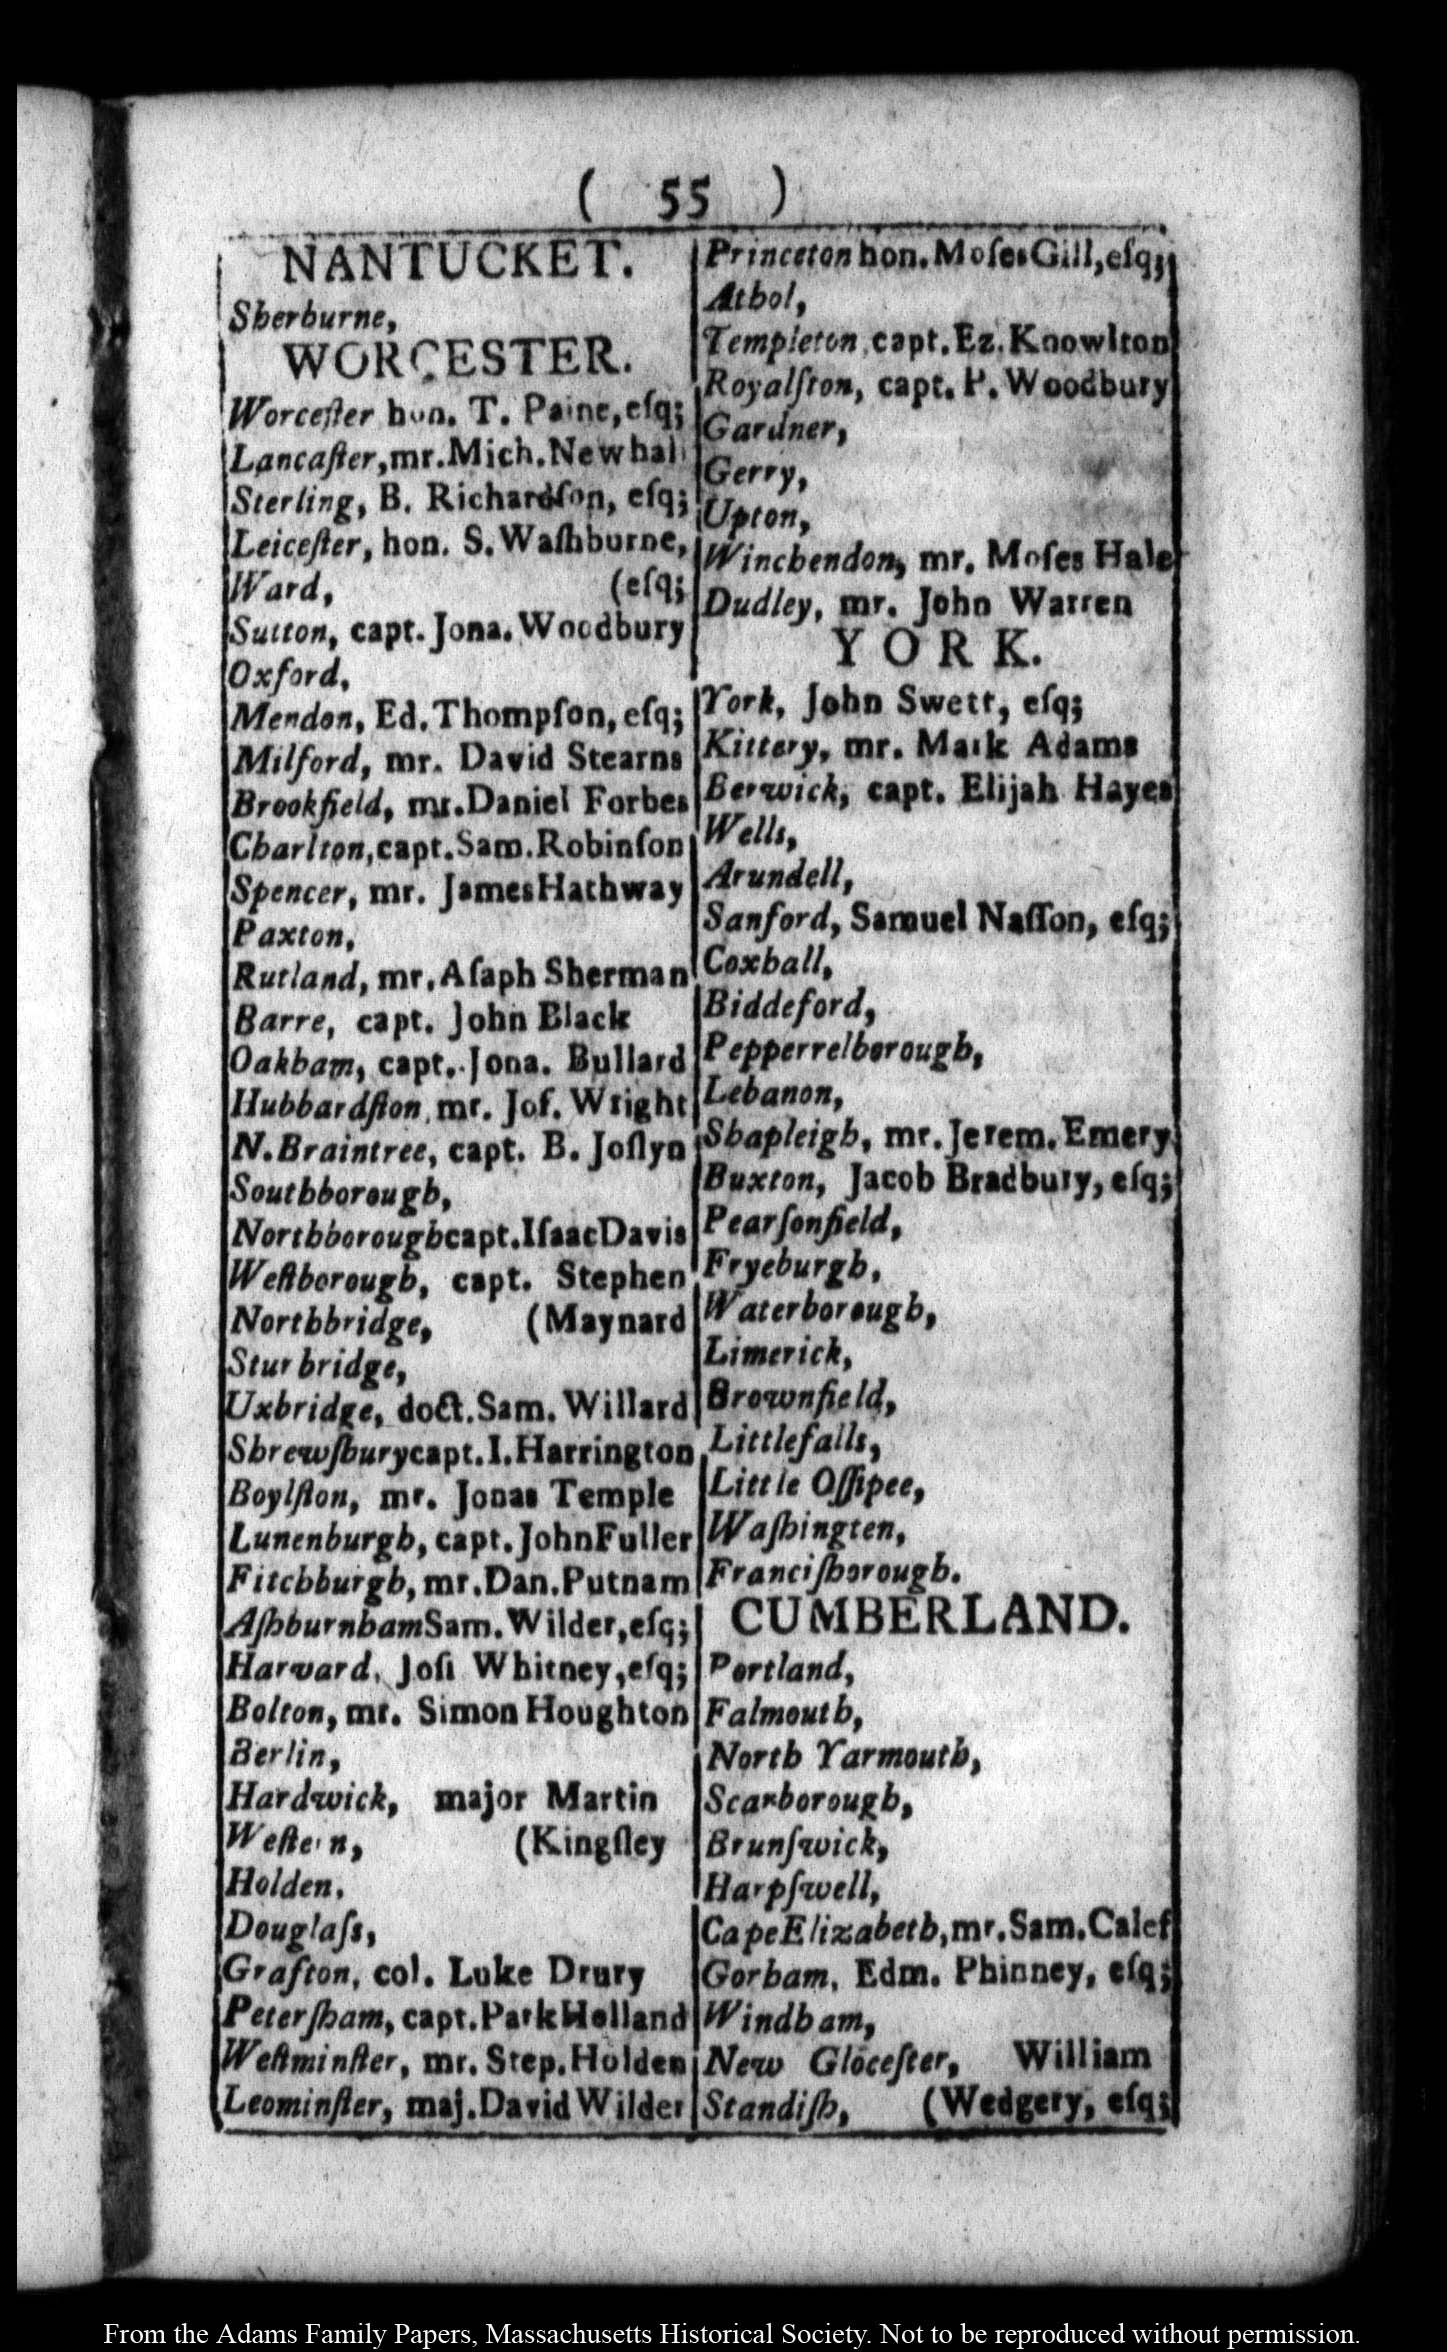 ( 55 )
NANTUCKET.
Sherburne,
WORCESTER.
Worceſter hon. T. Paine, eſq;
Lancaſter, mr. Mich. Newhal
Sterling, B. Richardſon, eſq;
Leiceſter, hon. S. Waſhburne,
Ward, (eſq;
Sutton, capt. Jona. Woodbury
Oxford,
Mendon, Ed. Thompſon, eſq;
Milford, mr. David Stearns
Brookfield, mr. Daniel Forbes
Charlton, capt. Sam. Robinſon
Spencer, mr. James Hathway
Paxton,
Rutland, mr. Aſaph Sherman
Barre, capt. John Black
Oakham, capt. Jona. Bullard
Hubbardſton, mr. Joſ. Wright
N. Braintree, capt. B. Joſlyn
Southborough,
Northborough capt. Iſaac Davis
Weſtborough, capt. Stephen
Northbridge, (Maynard
Sturbridge,
Uxbridge, doct. Sam. Willard
Shrewſbury capt. I. Harrington
Boylſton, mr. Jonas Temple
Lunenburgh, capt. John Fuller
Fitchburgh, mr. Dan. Putnam
Aſhburnham Sam. Wilder, eſq;
Harvard, Joſi Whitney, eſq;
Bolton, mr. Simon Houghton
Berlin,
Hardwick, major Martin
Weſtern, (Kingſley
Holden,
Douglaſs,
Grafton, col. Luke Drury
Peterſham, capt. Park Holland
Weſtminſter, mr. Step. Holden
Leominſter, maj. David Wilder
Princeton hon. Moſes Gill, eſq;
Athol,
Templeton, capt. Ez. Knowlton
Royalſton, capt. P. Woodbury
Gardner,
Gerry,
Upton,
Winchendon, mr. Moſes Hale
Dudley, mr. John Warren
YORK.
York, John Swett, eſq;
Kittery, mr. Mark Adams
Berwick, capt. Elijah Hayes
Wells,
Arundell,
Sanford, Samuel Naſſon, eſq;
Coxhall,
Biddeford,
Pepperrelborough,
Lebanon,
Shapleigh, mr. Jerem. Emery
Buxton, Jacob Bradbury, eſq;
Pearſonfield,
Fryeburgh,
Waterborough,
Limerick,
Brownfield,
Littlefalls,
Little Oſſipee,
Waſhingten,
Franciſborough.
CUMBERLAND.
Portland,
Falmouth,
North Yarmouth,
Scarborough,
Brunſwick,
Harpſwell,
Cape Elizabeth, mr. Sam. Calef
Gorham, Edm. Phinney, eſq;
Windham,
New Gloceſter, William
Standiſh, (Wedgery, eſq;
From the Adams Family Papers, Massachusetts Historical Society. Not to be reproduced without permission.